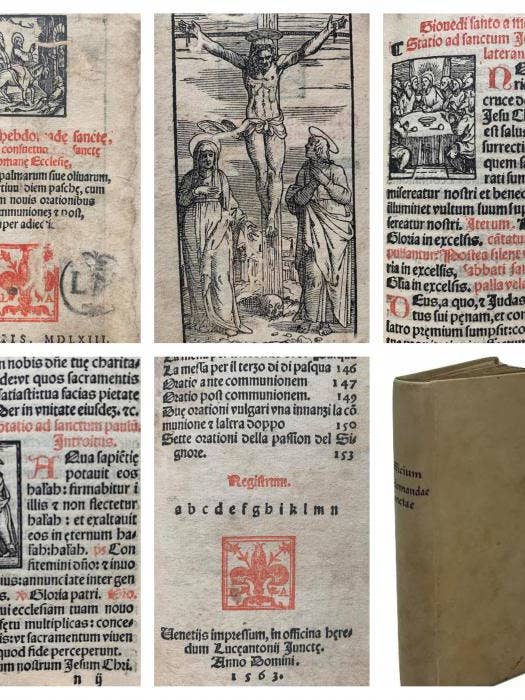 hebdo
sanctę,
consuetud
sanctę
omanę Ecclesię,
palmarum siue oliuarum,
rtiuū diem paschę, cum
m nouis orationibus
mmunionez ⁊ post,
per adiec
L
A
IIS, MDLXIII.
Giouedi santo a m
Statio ad sanctum Jo
lateran
N
cruce d
Jesu Ch
est salus
surrecti
quem sa
rati sum
misereatur nostri et bened
illuminet vultum suum sup
sereatur nostri. Iterum.
Gloria in excelsis.
ria in excelsis, Sabbati san
Glia in excelsis. palla vela
DEus, a quo, ⁊ Judas
tus sui pęnam, et con
latro pręmium sumpsit: con
n nobis dñe tuę charita
deivt quos sacramentis
satiasti: tua facias pietate
der in vnitate eiusdez, ⁊c.
tatio ad sanctum paulū.
Introitus.
AQua sapiętię
potauit eos
hałah: firmabitur i
illis ⁊ non flectetur
hałah: et exaltauit
eos in ęternum ha-
łah: hałah. ps Con
fitemini dño: ⁊ inuo
ius: annunciate inter gen
s. Gloria patri.
ui ecclesiam tuam nouo
fętu multiplicas: conce-
is: vt sacramentum viuen
quod fide perceperunt.
um nostrum Jesum Chri.
n ij
La messa per il terzo di di pasqua 146
Oratio ante communionem 147
Oratio post communem. 149
Due orationi vulgari vna innanzi la cō
munione ⁊ laltra doppo 150
Sette orationi della passion del Si
gnore. 153
Registrum.
a b c d e f g h i k l m n
L A
Uenetijs impressum, in officina hęre-
dum Lucęantonij Junctę.
Anno Domini.
1563.
fficium
omandae
nctae